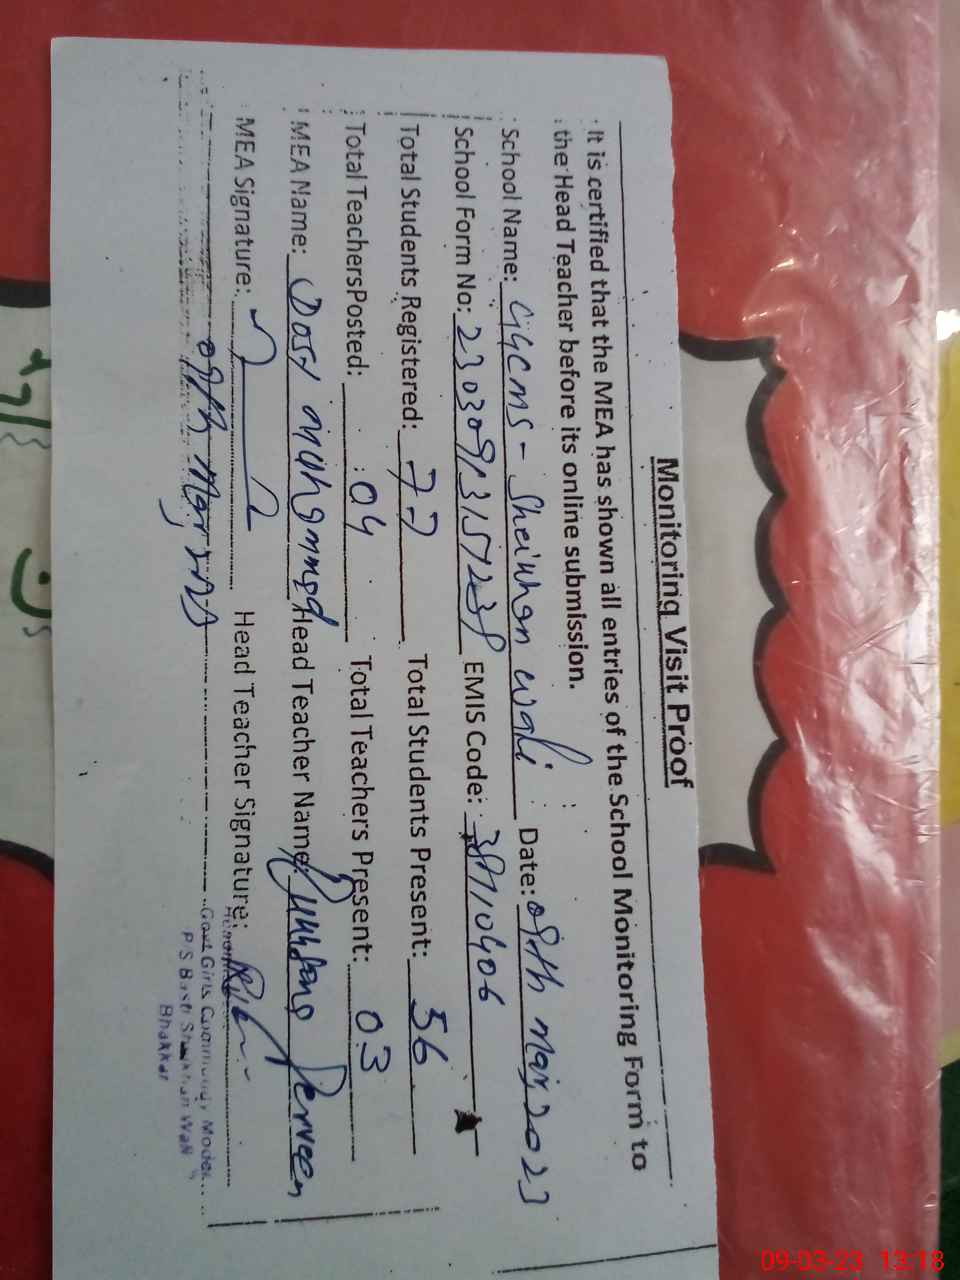 Monitoring Visit Proof
It is certified that the MEA has shown all entries of the School Monitoring Form to
the Head Teacher before its online submission.
School Name: GGCMS - Sheikhan wali Date: 09th Mar, 2023
School Form No: EMIS Code: 38110406
Total Students Registered: 77 Total Students Present: 56
Total TeachersPosted: 04 Total Teachers Present: 03
MEA Name: Dost Muhammad Head Teacher Name: Rukhsana Perveen
MEA Signature: Head Teacher Signature:
09th Mar, 2023
Govt Girls Community Model
P/S Basti Sheikhan Wali
Bhakkar
09-03-23 13:18